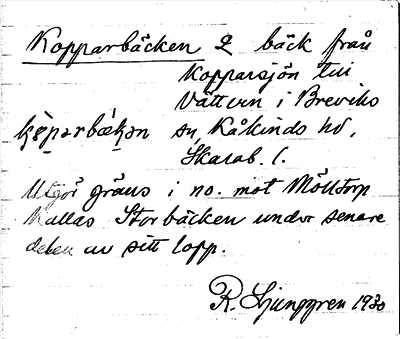 Kopparbäcken L bäck från
Kopparsjön till
Vättern i Breviks
kǫ̀pərbɛ́kən sn, Kåkinds hd,
Skarab. l.
Utgör gräns i no. mot Mölltorp
Kallas Storbäcken under senare
delen av sitt lopp.
R. Ljunggren 1930